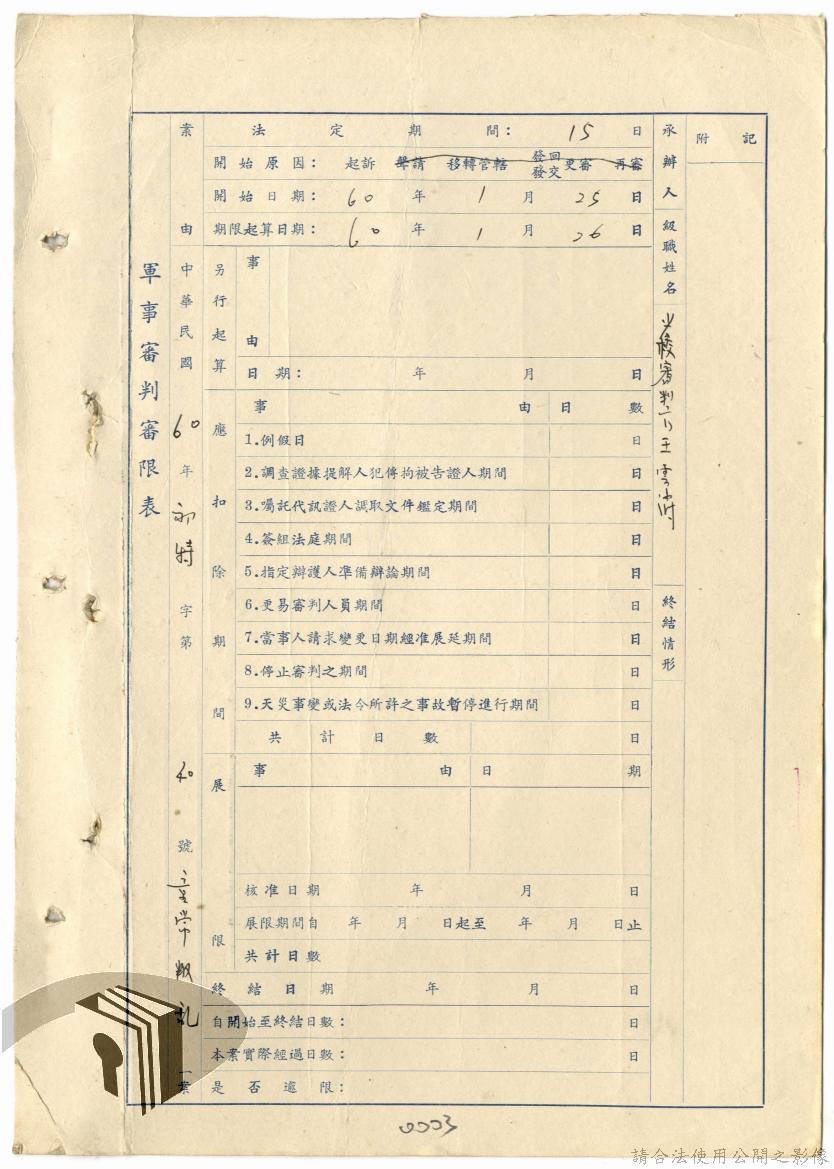 軍事審判審限表
案由 中華民國60年初特字第40號 叛亂一案
法定期間： 15 日
開始原因： 起訴 聲請 移轉管轄 發回發交更審 再審
開始日期： 60 年 1 月 25 日
期限起算日期： 60 年 1 月 26 日
另行起算
事由
日期： 年 月 日
應扣除期間
事由 日數
1.例假日 日
2.調查證據提解人犯傳拘被告證人期間 日
3.囑託代訊證人調取文件鑑定期間 日
4.簽組法庭期間 日
5.指定辯護人準備辯論期間 日
6.更易審判人員期間 日
7.當事人請求變更日期經准展延期間 日
8.停止審判之期間 日
9.天災事變或法令所許之事故暫停進行期間 日
共計日數 日
展限
事由 日期
核准日期 年 月 日
展限期間自 年 月 日起至 年 月 日止
共計日數
終結日期 年 月 日
自開始至終結日數： 日
本案實際經過日數： 日
是否逾限：
承辦人級職姓名 少校審判官王雲濤
終結情形
附記
0003
請合法使用公開之影像